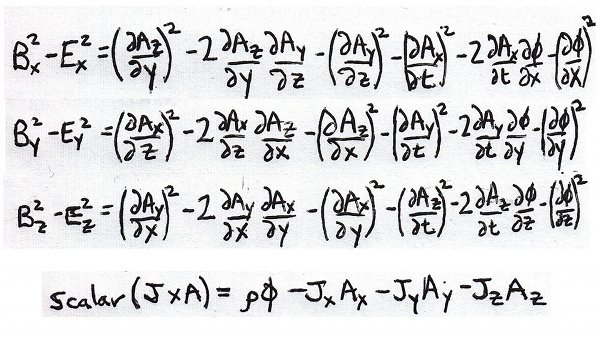 B_x^2 - E_x^2 = (∂A_z/∂y)^2 - 2 ∂A_z/∂y ∂A_y/∂z - (∂A_y/∂z)^2 - (∂A_x/∂t)^2 - 2 ∂A_x/∂t ∂φ/∂x - (∂φ/∂x)^2
B_y^2 - E_y^2 = (∂A_x/∂z)^2 - 2 ∂A_x/∂z ∂A_z/∂x - (∂A_z/∂x)^2 - (∂A_y/∂t)^2 - 2 ∂A_y/∂t ∂φ/∂y - (∂φ/∂y)^2
B_z^2 - E_z^2 = (∂A_y/∂x)^2 - 2 ∂A_y/∂x ∂A_x/∂y - (∂A_x/∂y)^2 - (∂A_z/∂t)^2 - 2 ∂A_z/∂t ∂φ/∂z - (∂φ/∂z)^2
scalar (J×A) = ρφ - J_x A_x - J_y A_y - J_z A_z